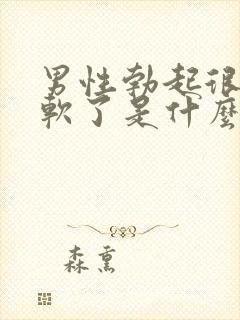 男性勃起很
軟了是什麼
森熏